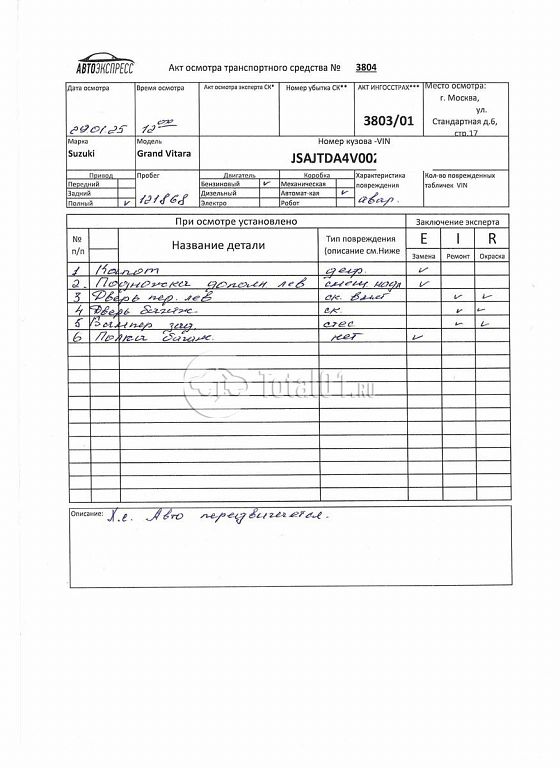 АВТОЭКСПРЕСС
Акт осмотра транспортного средства № 3804
Дата осмотра Время осмотра Акт осмотра эксперта СК* Номер убытка СК** АКТ ИНГОССТРАХ*** Место осмотра:
г. Москва,
ул.
290125 12 00 3803/01 Стандартная д.6,
стр.17
Марка Модель Номер кузова -VIN
Suzuki Grand Vitara JSAJTDA4V002
Привод Пробег Двигатель Коробка Характеристика повреждения Кол-во поврежденных табличек VIN
Передний Бензиновый ✓ Механическая
Задний 121868 Дизельный Автомат-кая ✓ авар.
Полный ✓ Электро Робот
При осмотре установлено Заключение эксперта
№ п/п Название детали Тип повреждения (описание см.Ниже E I R
Замена Ремонт Окраска
1 Капот дефр. ✓
2. Подножка дополн лев ✓
3 Дверь пер. лев ск. вмят ✓ ✓
4 Дверь багаж. ск. ✓ ✓
5 Бампер зад. ✓ ✓
6 Полка багаж. нет ✓
Total01.RU
Описание: Х.е. Авто передвигается.